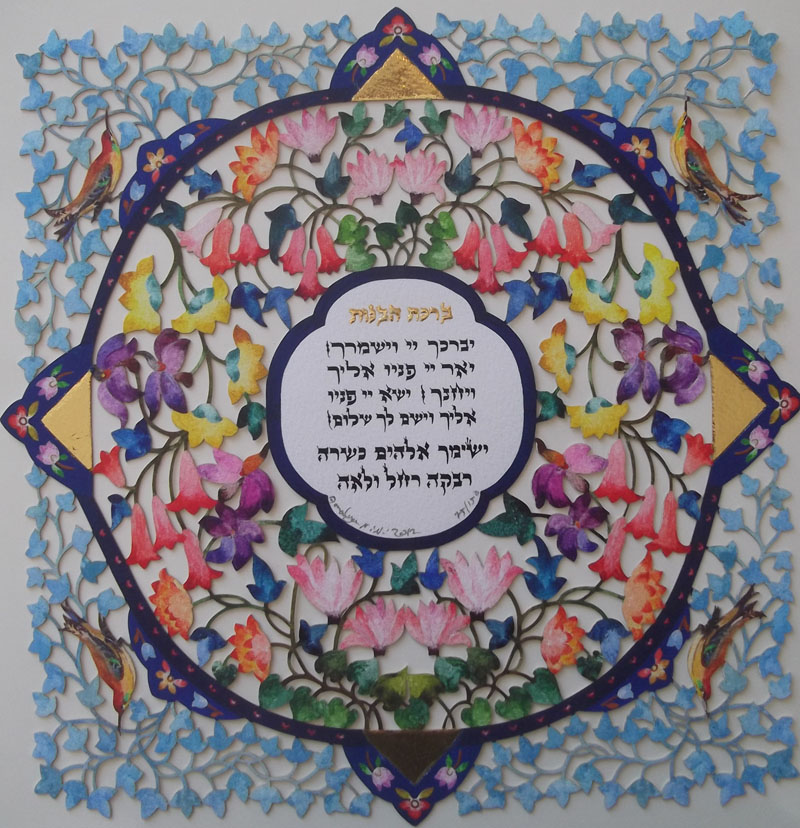 ברכת הבנות
יברכך יי וישמרך׃
יאר יי פניו אליך
ויחנך׃ ישא יי פניו
אליך וישם לך שלום׃
ישימך אלהים כשרה
רבקה רחל ולאה
2012